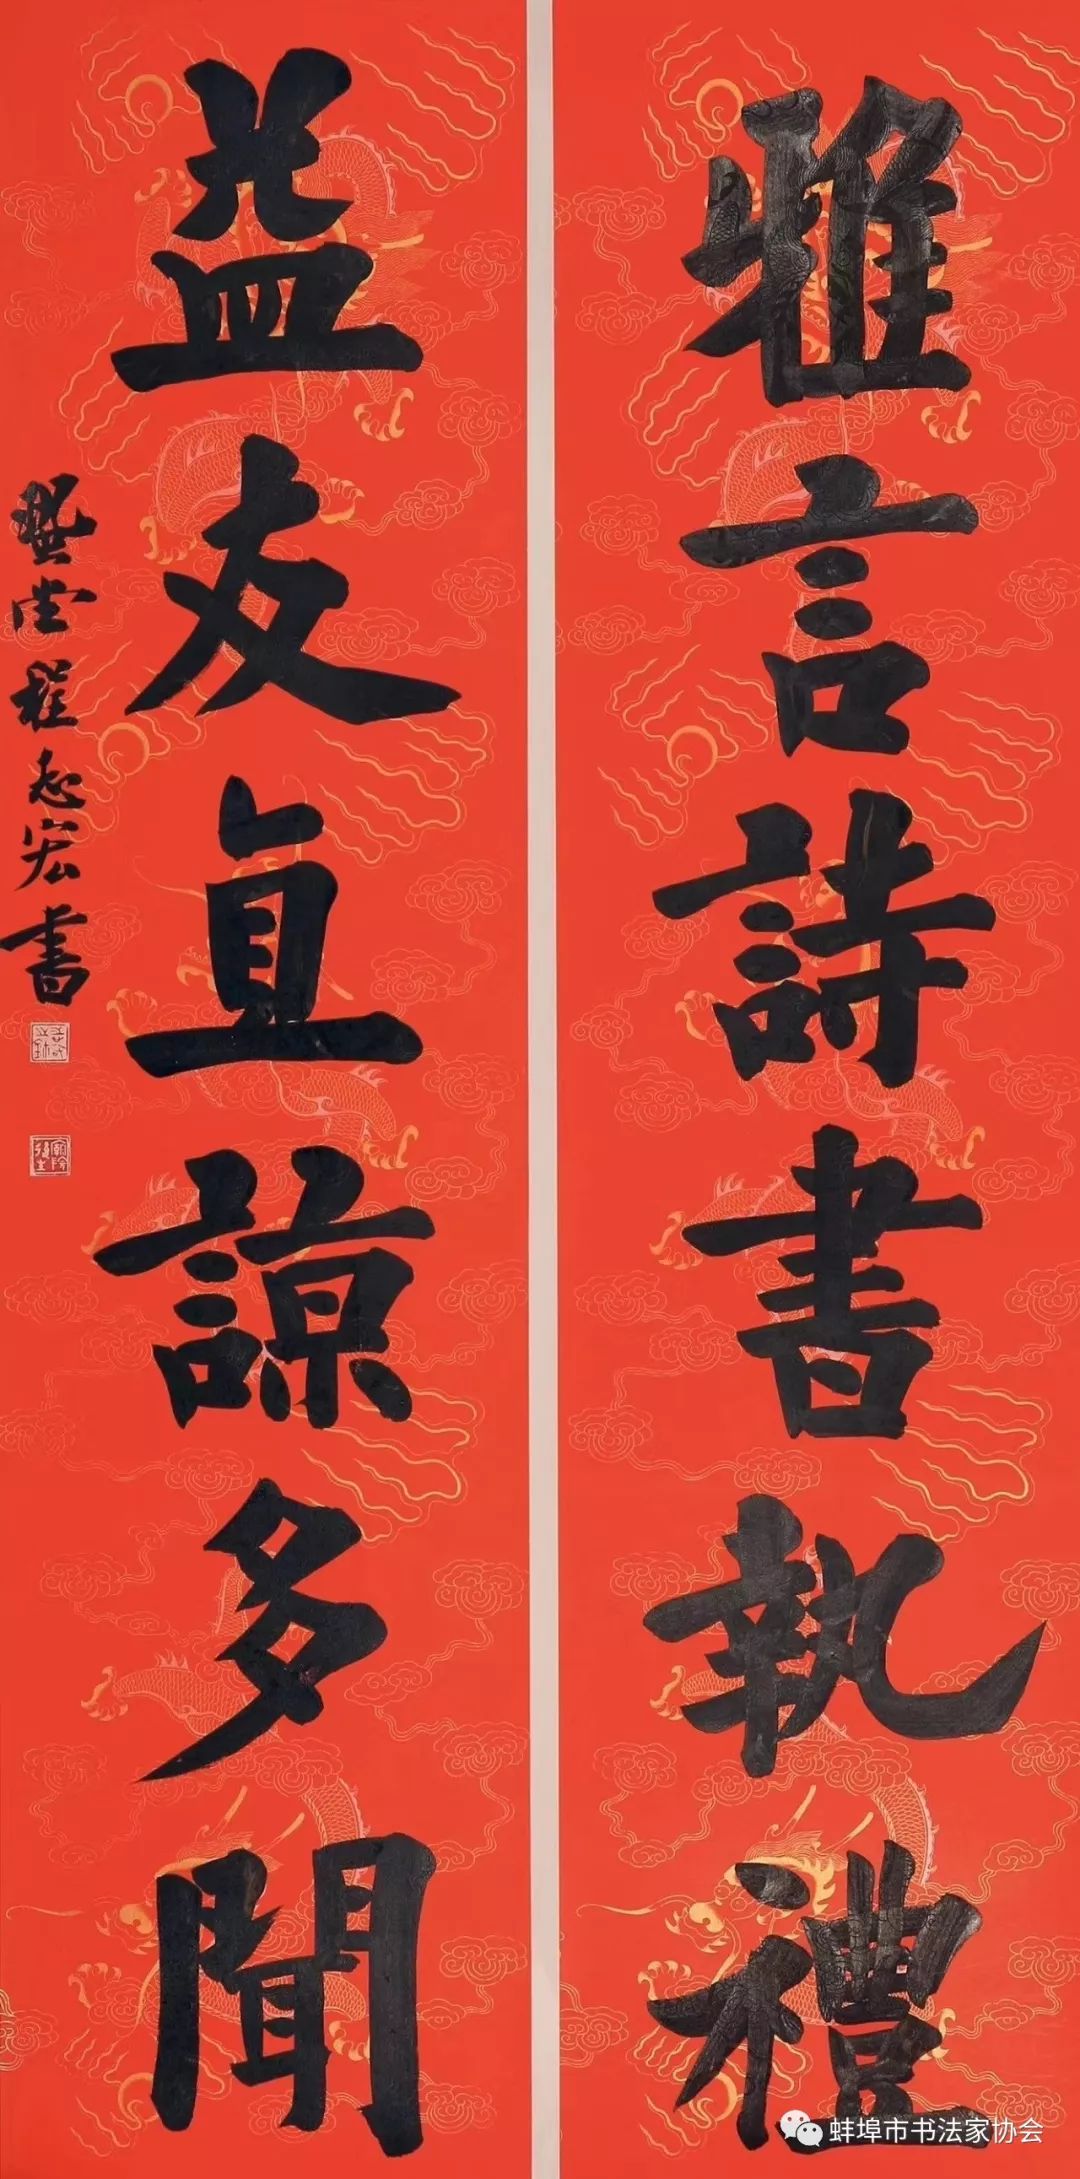 雅言詩書執禮
益友直諒多聞
堂程志宏書
蚌埠市书法家协会